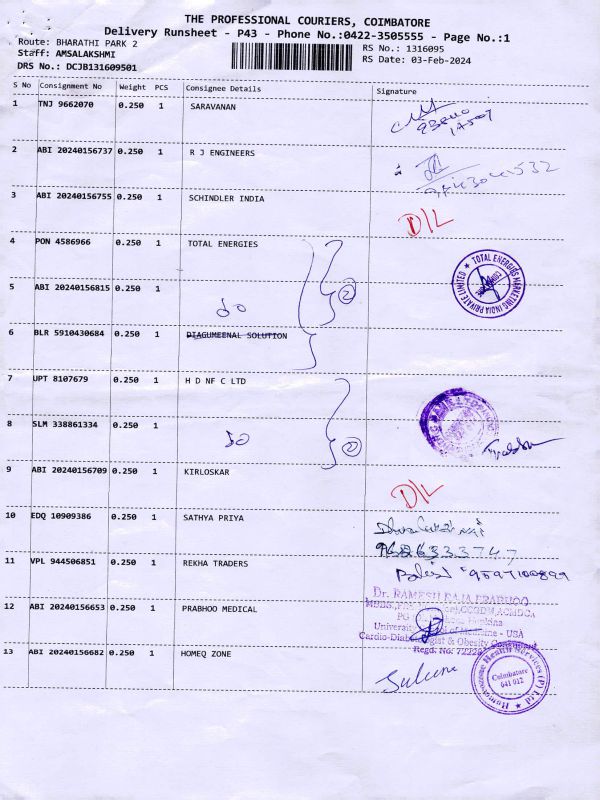 THE PROFESSIONAL COURIERS, COIMBATORE
Delivery Runsheet - P43 - Phone No.:0422-3505555 - Page No.:1
Route: BHARATHI PARK 2
Staff: AMSALAKSHMI
DRS No.: DCJB131609501
RS No.: 1316095
RS Date: 03-Feb-2024
S No Consignment No Weight PCS Consignee Details Signature
1 TNJ 9662070 0.250 1 SARAVANAN
2 ABI 20240156737 0.250 1 R J ENGINEERS
3 ABI 20240156755 0.250 1 SCHINDLER INDIA D/L
4 PON 4586966 0.250 1 TOTAL ENERGIES
TOTAL ENERGIES MARKETING INDIA PRIVATE LIMITED
5 ABI 20240156815 0.250 1 do 2
6 BLR 5910430684 0.250 1 DIAGUMEENAL SOLUTION
7 UPT 8107679 0.250 1 H D NF C LTD
8 SLM 338861334 0.250 1 do 2
9 ABI 20240156709 0.250 1 KIRLOSKAR D/L
10 EDQ 10909386 0.250 1 SATHYA PRIYA
11 VPL 944506851 0.250 1 REKHA TRADERS
12 ABI 20240156653 0.250 1 PRABHOO MEDICAL
Dr. RAMESH RAJA PRABHOO
University of Medicine - USA
Cardio-Diabetologist & Obesity Consultant
13 ABI 20240156682 0.250 1 HOMEQ ZONE
Health Services (P) Ltd
Coimbatore
641 012